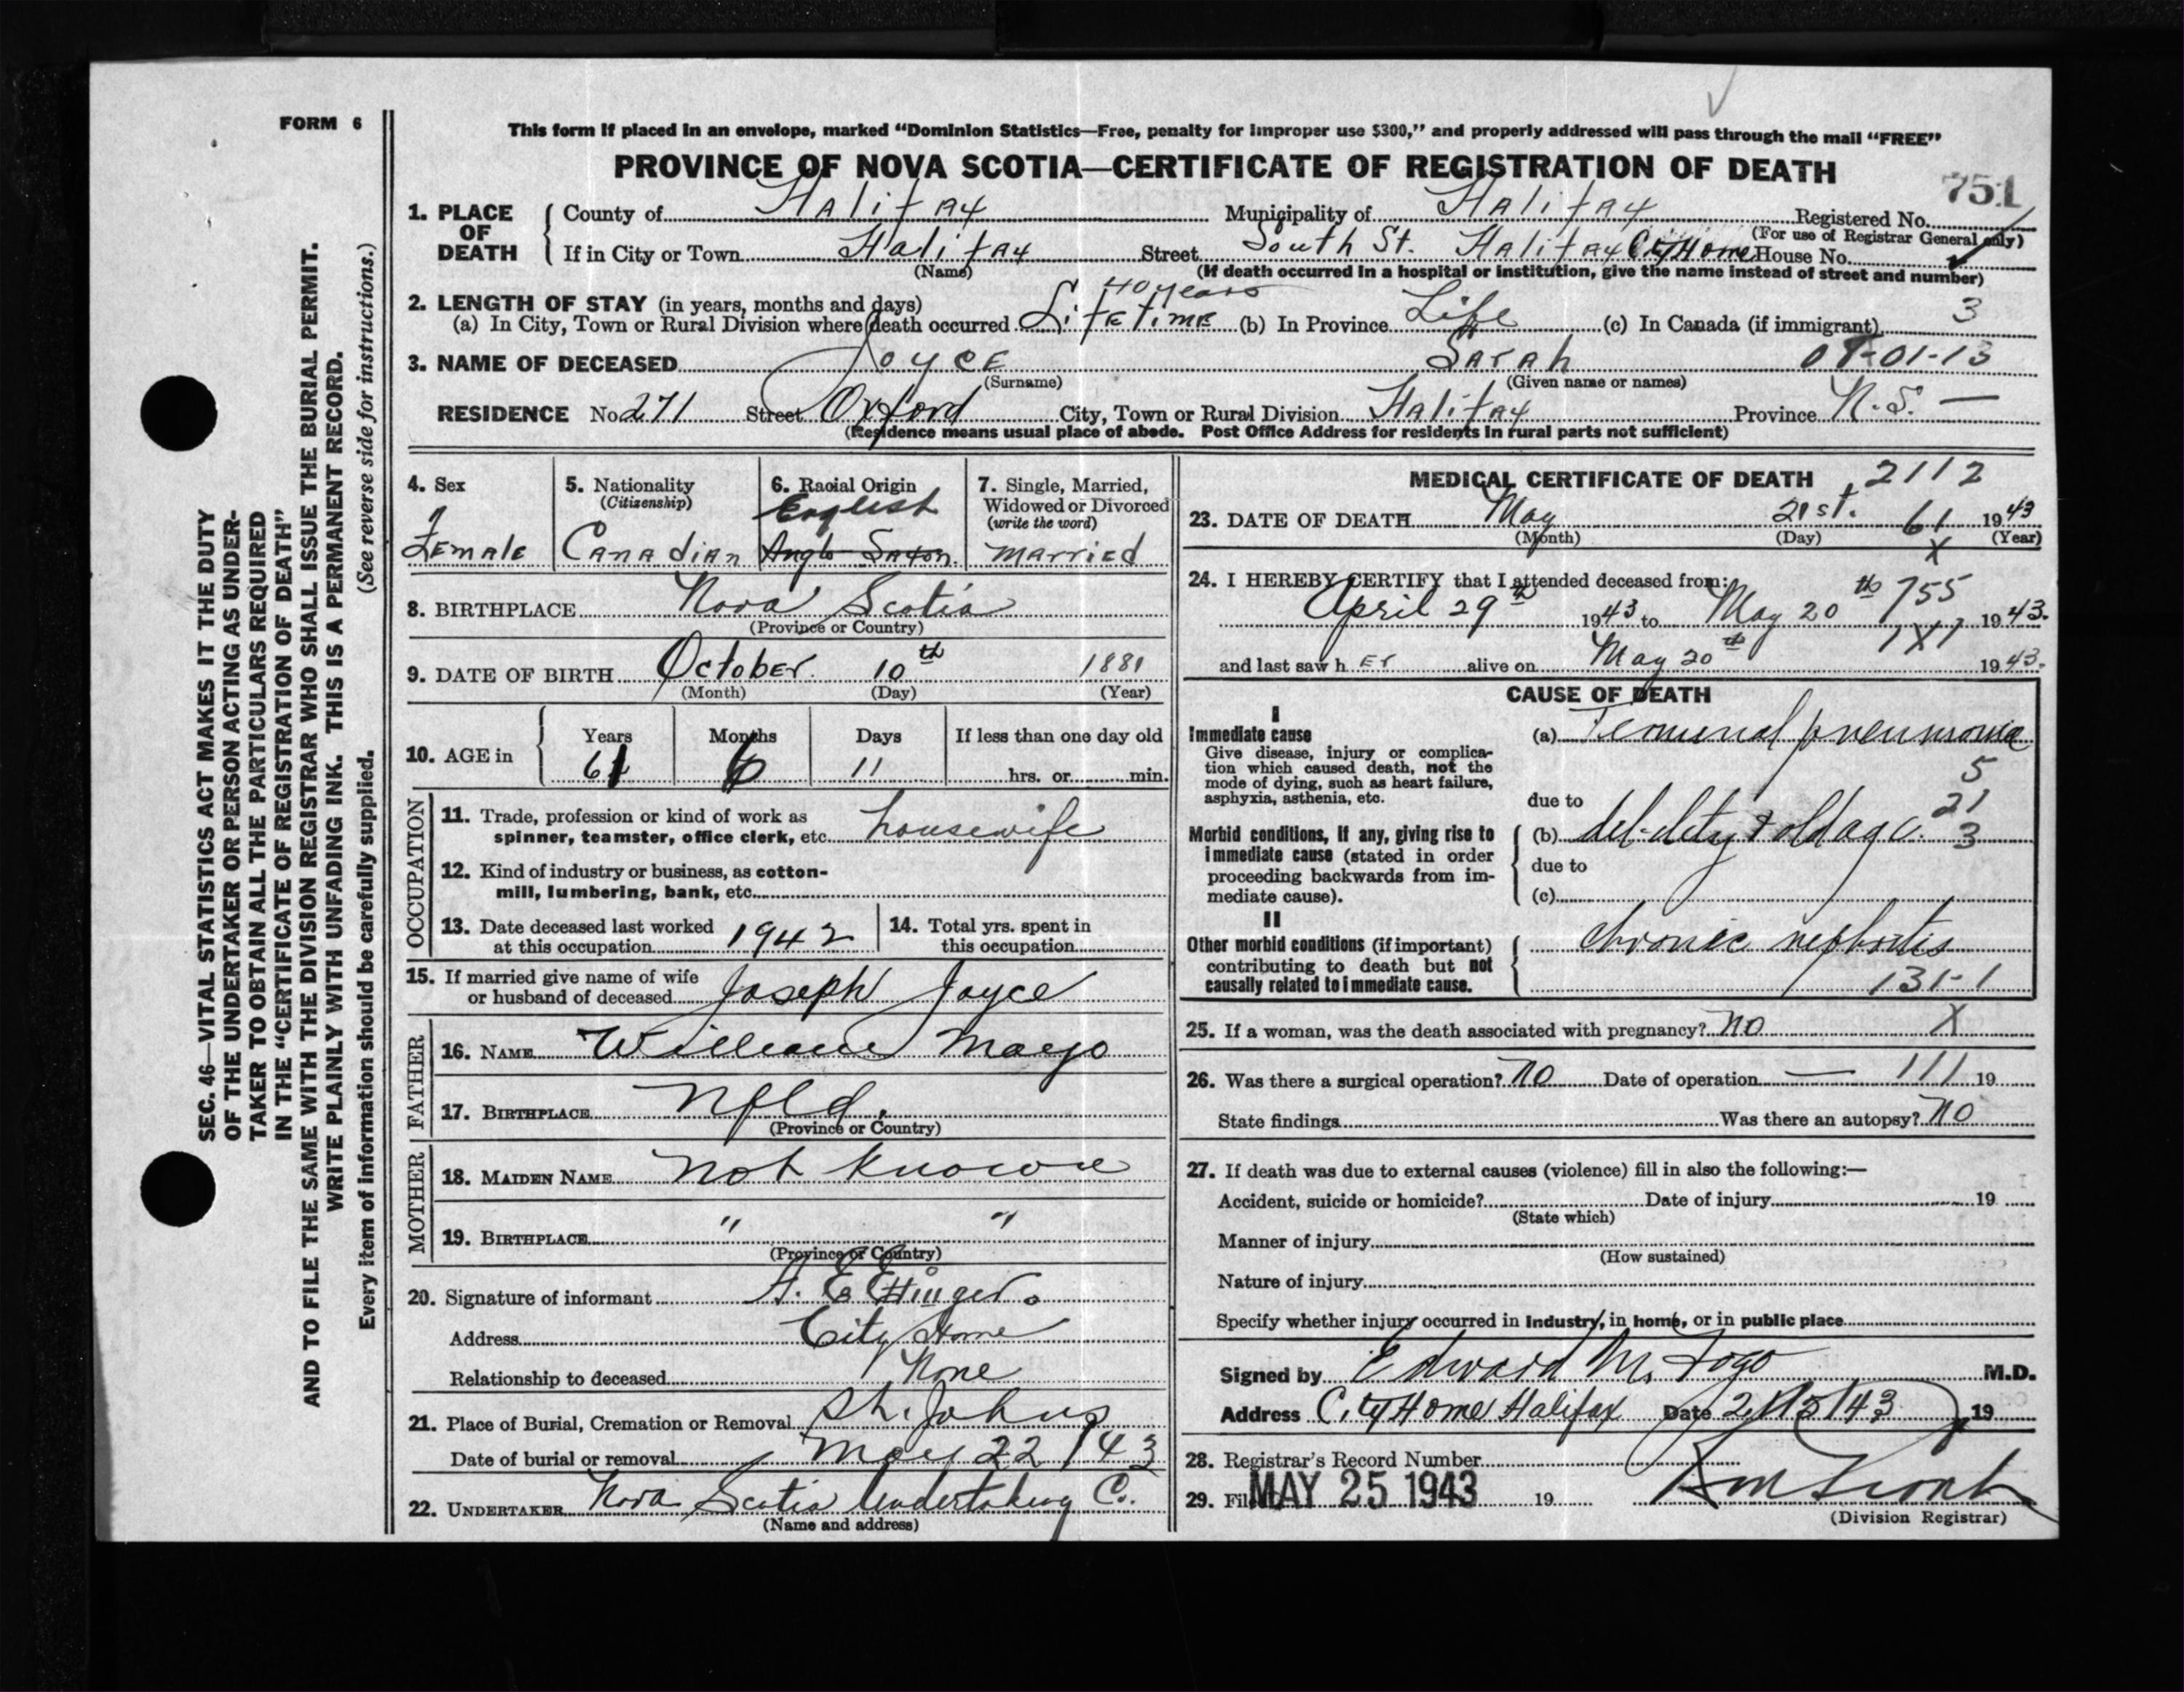 FORM 6
This form if placed in an envelope, marked "Dominion Statistics—Free, penalty for improper use $300," and properly addressed will pass through the mail "FREE"
PROVINCE OF NOVA SCOTIA—CERTIFICATE OF REGISTRATION OF DEATH
751
1. PLACE OF DEATH
County of Halifax Municipality of Halifax Registered No.
(For use of Registrar General only)
If in City or Town Halifax Street South St. Halifax City Home House No.
(Name) (If death occurred in a hospital or institution, give the name instead of street and number)
2. LENGTH OF STAY (in years, months and days) 40 years
(a) In City, Town or Rural Division where death occurred Life Time (b) In Province Life (c) In Canada (if immigrant) 3
3. NAME OF DECEASED Joyce Sarah 01-13
(Surname) (Given name or names)
RESIDENCE No. 271 Street Oxford City, Town or Rural Division Halifax Province N.S. —
(Residence means usual place of abode. Post Office Address for residents in rural parts not sufficient)
4. Sex Female
5. Nationality (Citizenship) Canadian
6. Racial Origin English Anglo Saxon.
7. Single, Married, Widowed or Divorced (write the word) married
8. BIRTHPLACE Nova Scotia
(Province or Country)
9. DATE OF BIRTH October 10th 1881
(Month) (Day) (Year)
10. AGE in
Years Months Days If less than one day old
61 6 11 hrs. or min.
OCCUPATION
11. Trade, profession or kind of work as
spinner, teamster, office clerk, etc. housewife
12. Kind of industry or business, as cotton-
mill, lumbering, bank, etc.
13. Date deceased last worked
at this occupation 1942
14. Total yrs. spent in
this occupation
15. If married give name of wife
or husband of deceased Joseph Joyce
FATHER
16. NAME William Mayo
17. BIRTHPLACE Nfld.
(Province or Country)
MOTHER
18. MAIDEN NAME not known
19. BIRTHPLACE " "
(Province or Country)
20. Signature of informant E Ettinger.
Address City Home
Relationship to deceased None
21. Place of Burial, Cremation or Removal St. Johns
Date of burial or removal May 22/43
22. UNDERTAKER Nova Scotia Undertaking C.
(Name and address)
MEDICAL CERTIFICATE OF DEATH 2112
23. DATE OF DEATH May 21st. 61 1943
(Month) (Day) (Year)
X
24. I HEREBY CERTIFY that I attended deceased from:
April 29th 1943 to May 20th 755 1943.
1X1
and last saw her alive on May 20th 1943.
CAUSE OF DEATH
I
Immediate cause
Give disease, injury or complica-
tion which caused death, not the
mode of dying, such as heart failure,
asphyxia, asthenia, etc.
(a) Terminal pneumonia
5
due to 21
Morbid conditions, if any, giving rise to
immediate cause (stated in order
proceeding backwards from im-
mediate cause).
(b) debility & old age. 3
due to
(c)
II
Other morbid conditions (if important)
contributing to death but not
causally related to immediate cause.
chronic nephritis
131-1
25. If a woman, was the death associated with pregnancy? no X
26. Was there a surgical operation? no Date of operation — 111 19
State findings Was there an autopsy? no
27. If death was due to external causes (violence) fill in also the following:—
Accident, suicide or homicide? Date of injury 19
(State which)
Manner of injury
(How sustained)
Nature of injury
Specify whether injury occurred in industry, in home, or in public place
Signed by Edward M. Fogo M.D.
Address City Home Halifax Date 21/5/43 19
28. Registrar's Record Number
29. Filed MAY 25 1943 19
(Division Registrar)
SEC. 46—VITAL STATISTICS ACT MAKES IT THE DUTY
OF THE UNDERTAKER OR PERSON ACTING AS UNDER-
TAKER TO OBTAIN ALL THE PARTICULARS REQUIRED
IN THE "CERTIFICATE OF REGISTRATION OF DEATH"
AND TO FILE THE SAME WITH THE DIVISION REGISTRAR WHO SHALL ISSUE THE BURIAL PERMIT.
WRITE PLAINLY WITH UNFADING INK. THIS IS A PERMANENT RECORD.
Every item of information should be carefully supplied. (See reverse side for instructions.)